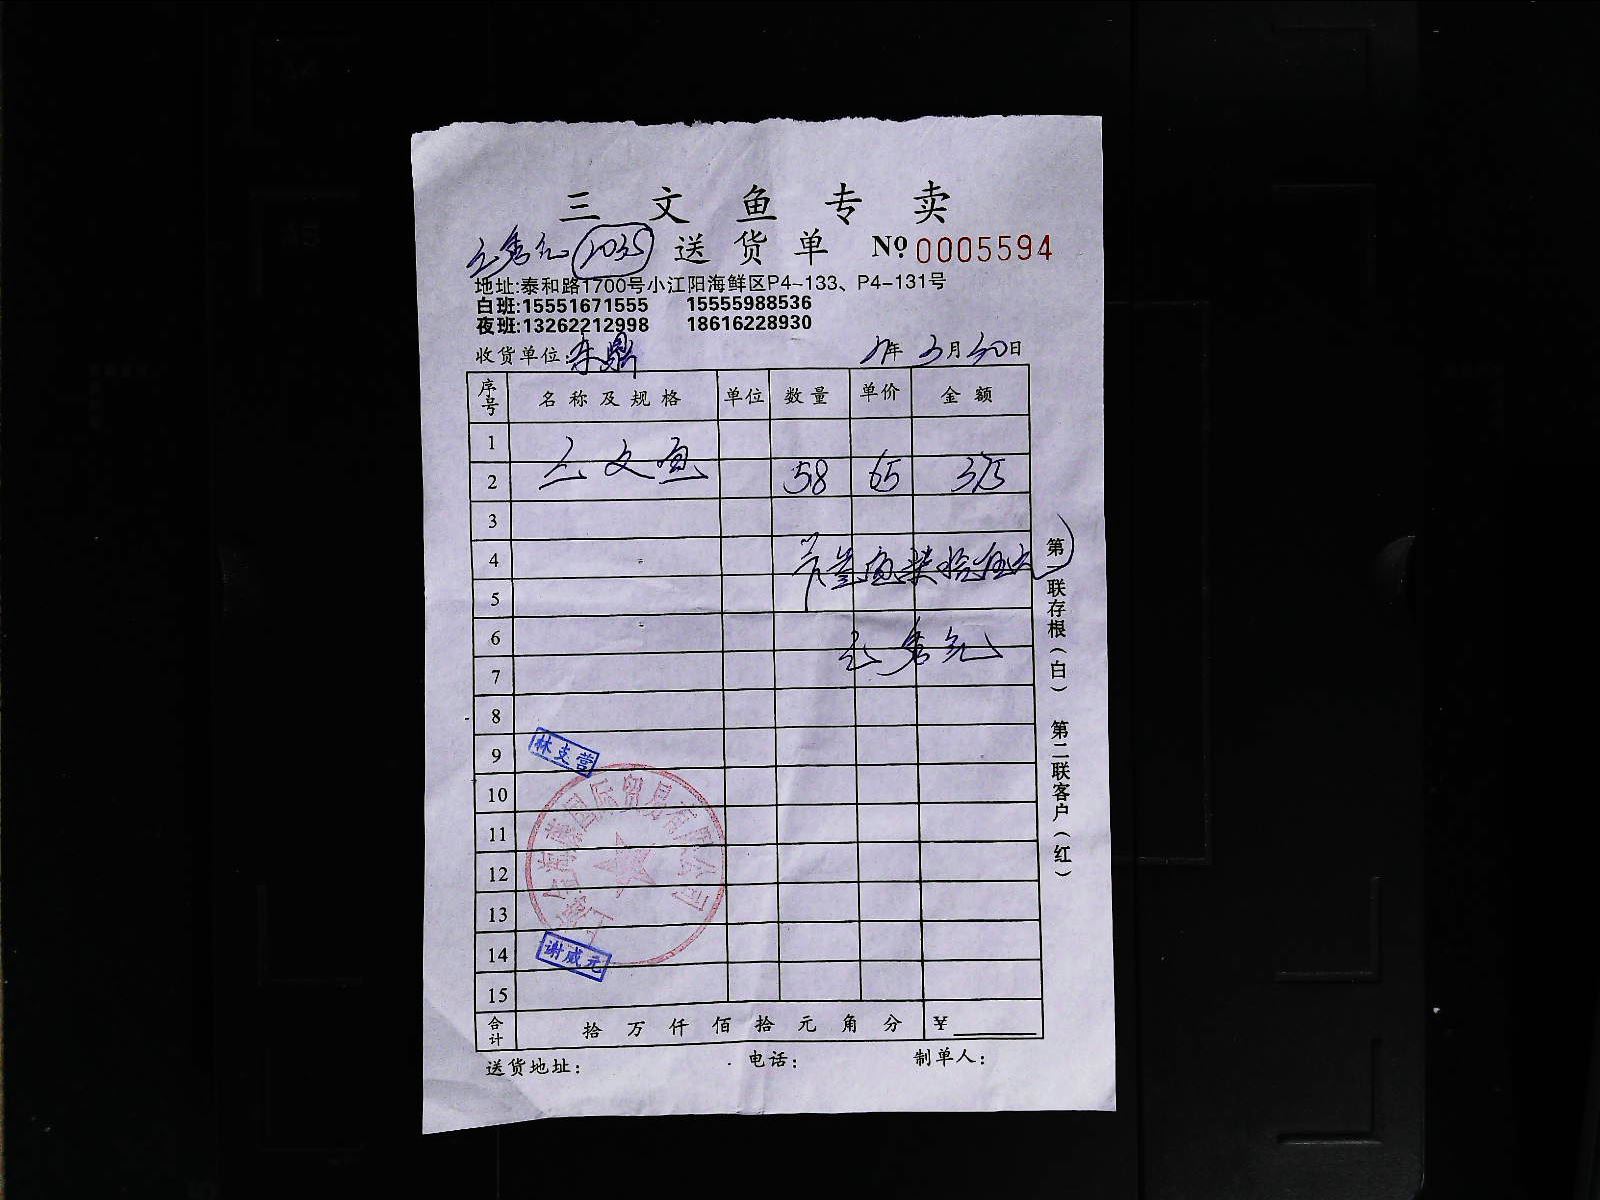 三文鱼专卖
1035 送货单 № 0005594
地址:泰和路1700号小江阳海鲜区P4-133、P4-131号
白班:15551671555 15555988536
夜班:13262212998 18616228930
收货单位: 年 3月30日
序号 名称及规格 单位 数量 单价 金额
1
三文鱼
2 58 65 375
3
4
叁佰柒拾伍元
5
6
7
8
9
林支营
10
11
12
13
国际贸易有限公司
14
谢威元
15
合计 拾 万 仟 佰 拾 元 角 分 ¥
送货地址: 电话: 制单人:
第一联存根(白) 第二联客户(红)